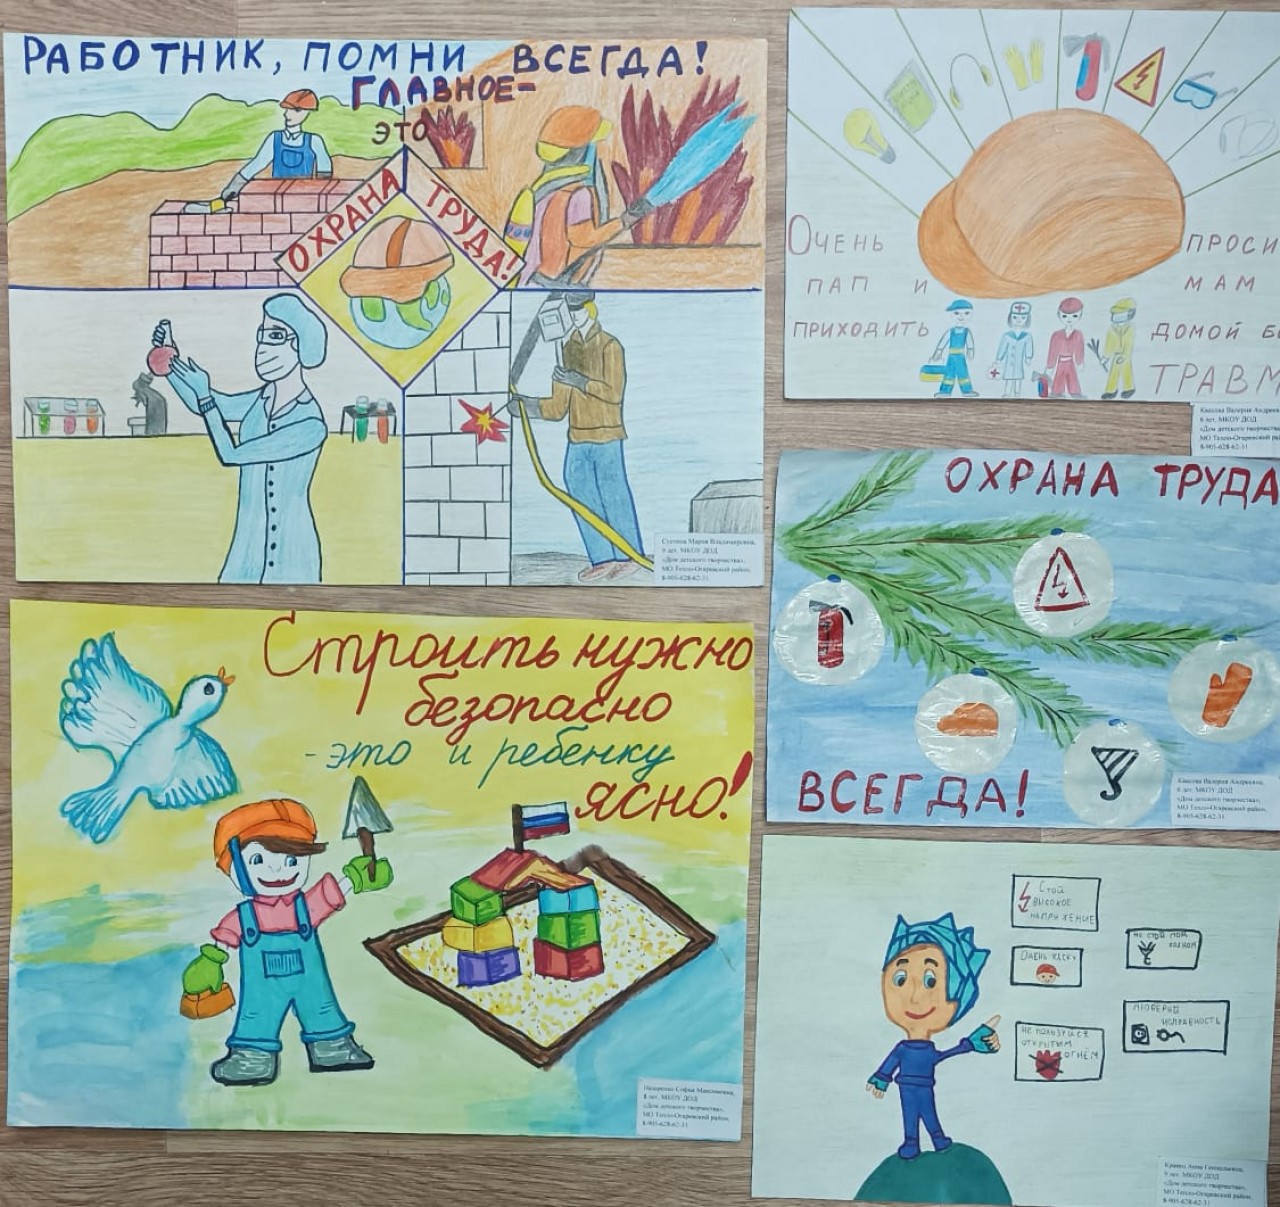 РАБОТНИК, ПОМНИ ВСЕГДА!
ГЛАВНОЕ-
ЭТО
ОХРАНА ТРУДА!
9 лет, МКОУ ДОД
«Дом детского творчества»,
МО Тепло-Огаревский район,
8-905-628-62-31
ОЧЕНЬ ПРОСИ
ПАП И МАМ
ПРИХОДИТЬ ДОМОЙ БЕ
ТРАВМ
6 лет, МКОУ ДОД
«Дом детского творчества»
МО Тепло-Огаревский
8-905-628-62-31
ОХРАНА ТРУДА
ВСЕГДА!
6 лет, МКОУ ДОД
«Дом детского творчества»,
МО Тепло-Огаревский район,
8-905-628-62-31
Строить нужно
безопасно
- это и ребенку
ясно!
8 лет, МКОУ ДОД
«Дом детского творчества»,
МО Тепло-Огаревский район,
8-905-628-62-31
Стой
ВЫСОКОЕ
НАПРЯЖЕНИЕ
ОДЕНЬ КАСКУ
НЕ СТОЙ ПОД
КРАНОМ
НЕ ПОЛЬЗУЙСЯ
ОТКРЫТЫМ
ОГНЁМ
ПРОВЕРЬ
ИСПРАВНОСТЬ
9 лет, МКОУ ДОД
«Дом детского творчества»,
МО Тепло-Огаревский район,
8-905-628-62-31